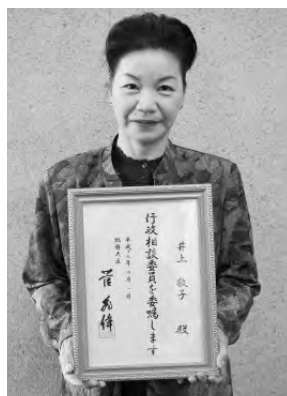 井上 敬子 殿
行政相談委員を委嘱します
平成十 年 月一日
総務大臣
菅 義偉